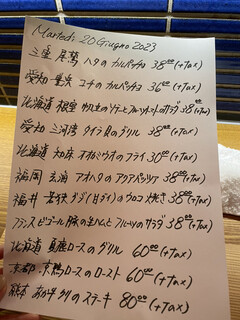 Martedì 20 Giugno 2023
三重 尾鷲 ハタの カルパッチョ 38⁰⁰(+Tax)
愛知 豊浜 コチの カルパッチョ 36⁰⁰(+Tax)
北海道 根室 のソテーとフルーツトマトのサラダ 38⁰⁰(+Tax)
愛知 三河湾 タイラ貝の グリル 38⁰⁰(+Tax)
北海道 知床 オオカミウオの フライ 30⁰⁰(+Tax)
福岡 玄海 アオハタの アクアパッツァ 38⁰⁰(+Tax)
福井 若狭 グジ(甘ダイ)の ウロコ焼き 38⁰⁰(+Tax)
フランス ビゴール豚の生ハムと フルーツのサラダ 38⁰⁰(+Tax)
北海道 夏鹿ロースの グリル 60⁰⁰(+Tax)
京都 京鴨ロースの ロースト 60⁰⁰(+Tax)
熊本 あか牛 クリの ステーキ 80⁰⁰(+Tax)